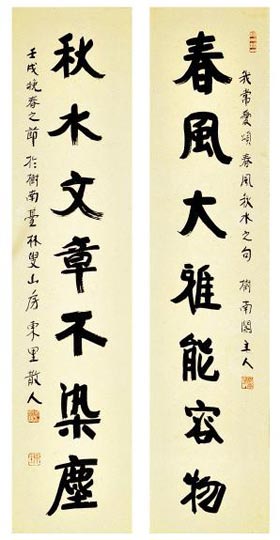 春風大雅能容物
我常愛頌春風秋水之句 樹南閣主人
秋水文章不染塵
壬戌晚春之節於樹南臺林叟山房東里散人